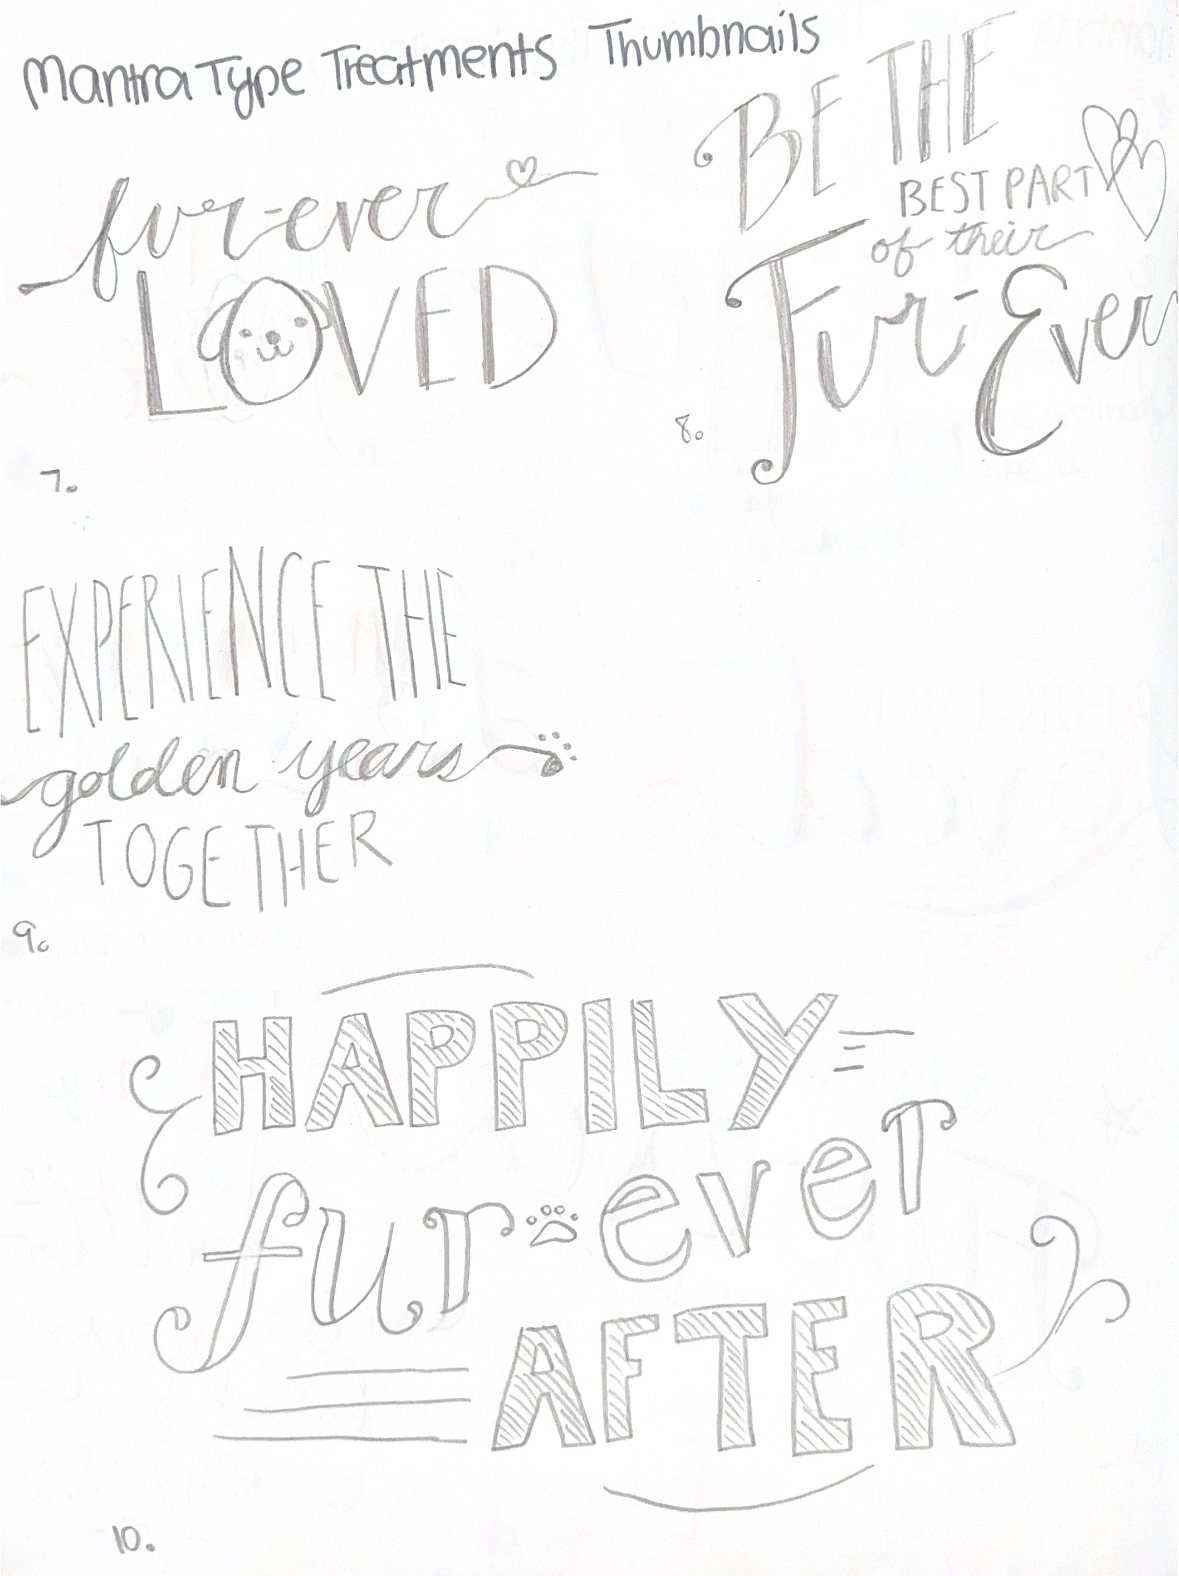 Mantra Type Treatments Thumbnails
fur-ever
LOVED
7.
BE THE
BEST PART
of their
Fur-Ever
8.
EXPERIENCE THE
golden years
TOGETHER
9.
HAPPILY
fur ever
AFTER
10.